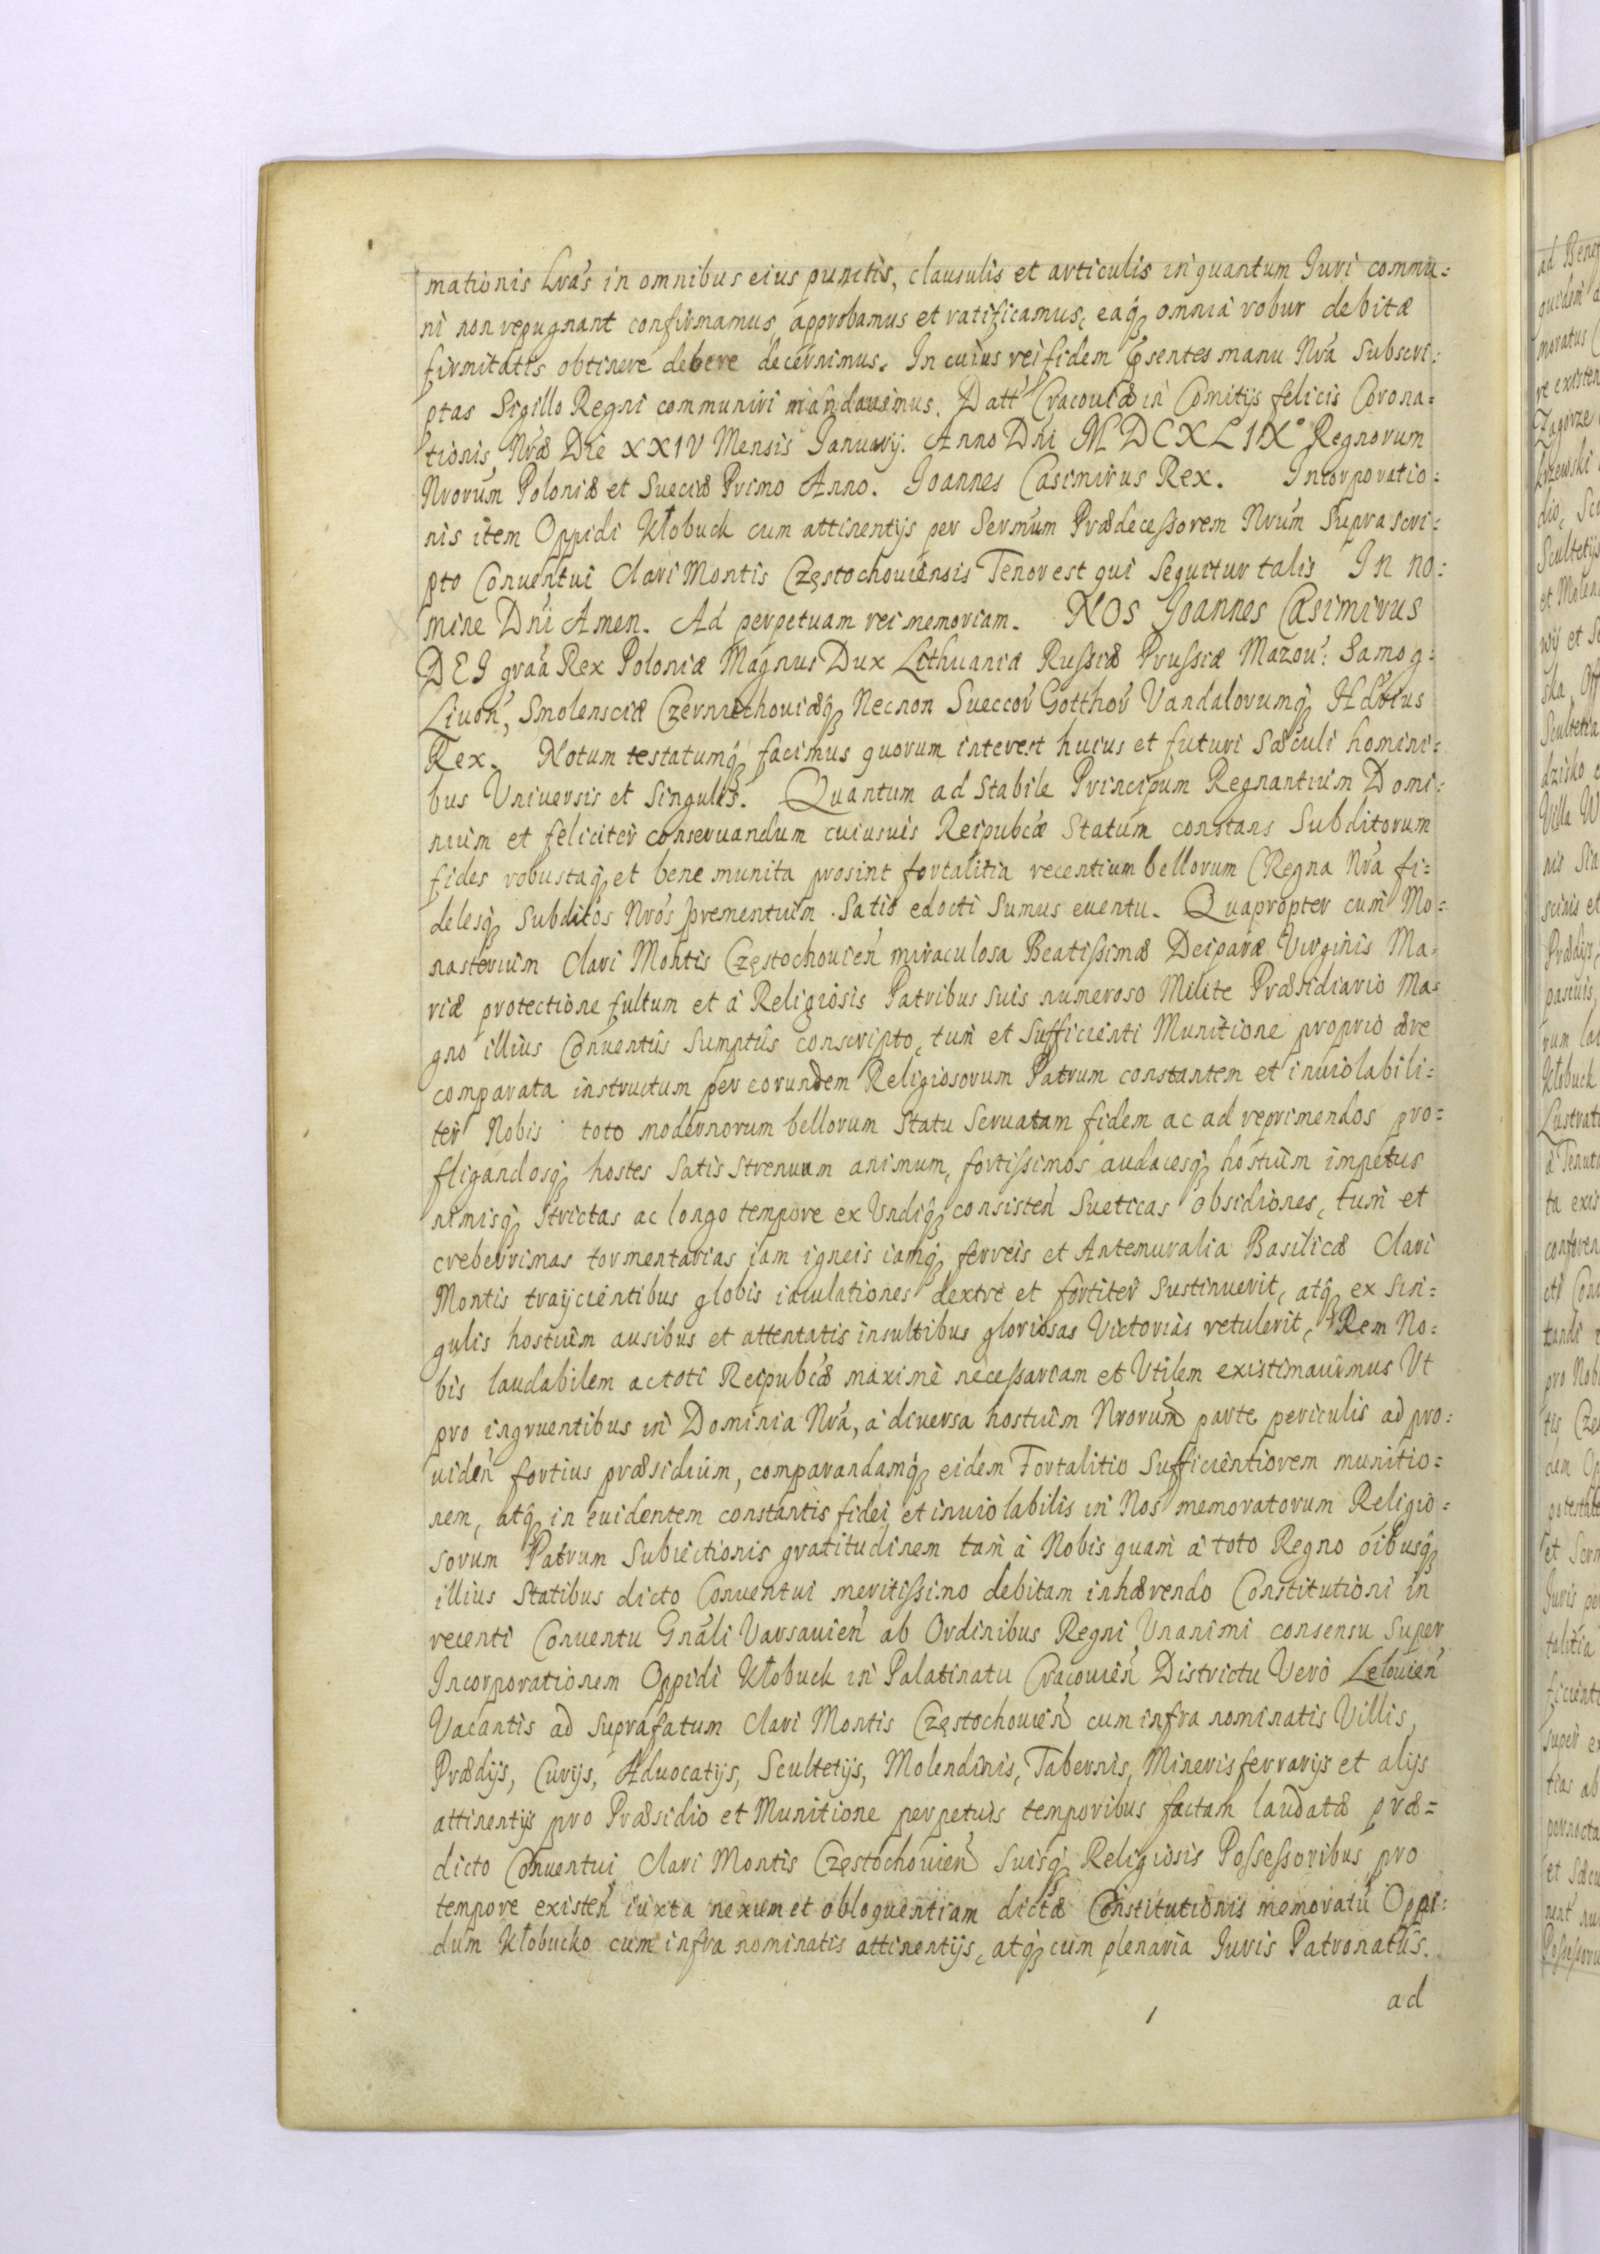 mationis Lrás in omnibus eius punctis, clausulis et articulis in quantum Iuri commu=
ni non repugnant confirmamus, approbamus et ratificamus, eaq́ꝫ omnia robur debitæ
firmitatis obtinere debere decernimus. In cuius rei fidem p̃sentes manu Nrá Subscri=
ptas Sigillo Regni communiri mandauimus. Datt Cracouiæ in Comitijs felicis Corona=
tionis Nræ Die XXIV Mensis Ianuarij. Anno Dni MDCXLIX° Regnorum
Nrorum Poloniæ et Sueciæ Primo Anno. Joannes Casimirus Rex. Incorporatio=
nis item Oppidi Kłobuck cum attinentijs per Sermum Prædecessorem Nrum Suprascri=
pto Conuentui Clari Montis Częstochouiensis Tenor est qui sequitur talis In no=
mine Dni Amen. Ad perpetuam rei memoriam. NOS Joannes Casimirus
DEI graá Rex Poloniæ Magnus Dux Lithuaniæ Russiæ Prussiæ Mazou: Samog:
Liuoń, Smolensciæ Czerniechouiæq́ꝫ Necnon Sueccor Gotthor Vandalorumq́ꝫ Hdrius
Rex. Notum testatumq́ꝫ facimus quorum interest huius et futuri Sæculi homini=
bus Vniuersis et Singulis. Quantum ad Stabile Principum Regnantium Domi=
nium et feliciter conseruandum cuiusuis Reipubcæ Statum constans Subditorum
fides robustaq́ꝫ et bene munita prosint fortalitia recentium bellorum (Regna Nra fi=
delesq́ꝫ Subditos Nrós prementium. Satis edocti Sumus euentu. Quapropter cum Mo=
nasterium Clari Montis Częstochouień miraculosa Beatissimæ Deiparæ Virginis Ma=
riæ protectione fultum et á Religiosis Patribus suis numeroso Milite Præsidiario Ma=
gno illius Conuentûs Sumptûs conscripto, tum et Sufficienti Munitione proprio ære
comparata instructum per eorundem Religiosorum Patrum constantem et inuiolabili=
ter Nobis toto modernorum bellorum Statu Seruatam fidem ac ad reprimendos pro=
fligandosq́ꝫ hostes Satis Strenuum animum, fortissimos audacesq́ꝫ hostium impetus
nimisq́ꝫ Strictas ac longo tempore ex Vndiq́ꝫ consisteń Sueticas obsidiones, tum et
creberrimas tormentarias iam igneis iamq́ꝫ ferreis et Antemuralia Basilicæ Clari
Montis traijcientibus globis iaculationes dextré et fortiter Sustinuerit, atq́ꝫ ex Sin=
gulis hostium ausibus et attentatis insultibus gloriosas Victorias retulerit, Rem No=
bis laudabilem ac toti Reipubcæ maximé necessariam et Vtilem existimauimus Vt
pro ingruentibus in Dominia Nrá, á diuersa hostium Nrorum parte periculis ad pro=
uideń fortius præsidium, comparandamq́ꝫ eidem Fortalitio Sufficientiorem munitio=
nem, atq́ꝫ in euidentem constantis fidei et inuiolabilis in Nos memoratorum Religio=
sorum Patrum Subiectionis gratitudinem tam á Nobis quam á toto Regno oibusq́ꝫ
illius Statibus dicto Conuentui meritissimo debitam inhærendo Constitutioni in
recenti Conuentu Gnáli Varsauień ab Ordinibus Regni Vnanimi consensu Super
Incorporationem Oppidi Kłobuck in Palatinatu Cracouień Districtu Vero Lelouień
Vacantis ad suprafatum Clari Montis Częstochouień cum infra nominatis Villis,
Prædijs, Curijs, Aduocatijs, Scultetijs, Molendinis, Tabernis, Mineris ferrarijs et alijs
attinentijs pro Præsidio et Munitione perpetuis temporibus factam laudatæ præ=
dicto Conuentui Clari Montis Częstochouień Suisq́ꝫ Religiosis Possessoribus pro
tempore existeń iuxta nexum et obloquentiam dictæ Constitutionis memoratú Oppi=
dum Kłobucko cum infra nominatis attinentijs, atq́ꝫ cum plenaria Iuris Patronatûs.
ad